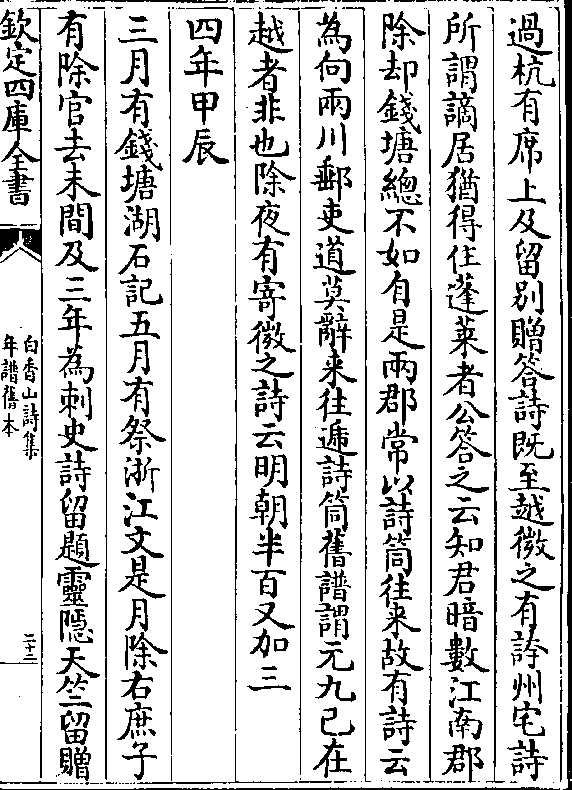 過杭有席上及留别贈答詩既至越微之有誇州宅詩
所謂謫居猶得住蓬萊者公答之云知君暗數江南郡
除却錢塘總不如自是兩郡常以詩筒往来故有詩云
為向兩川郵吏道莫辭来往遞詩筒舊譜謂元九已在
越者非也除夜有寄微之詩云明朝半百又加三
四年甲辰
三月有錢塘湖石記五月有祭浙江文是月除右庶子
有除官去未間及三年為刺史詩留題靈隱天竺留贈
欽定四庫全書
白香山詩集
年譜舊本
二十二